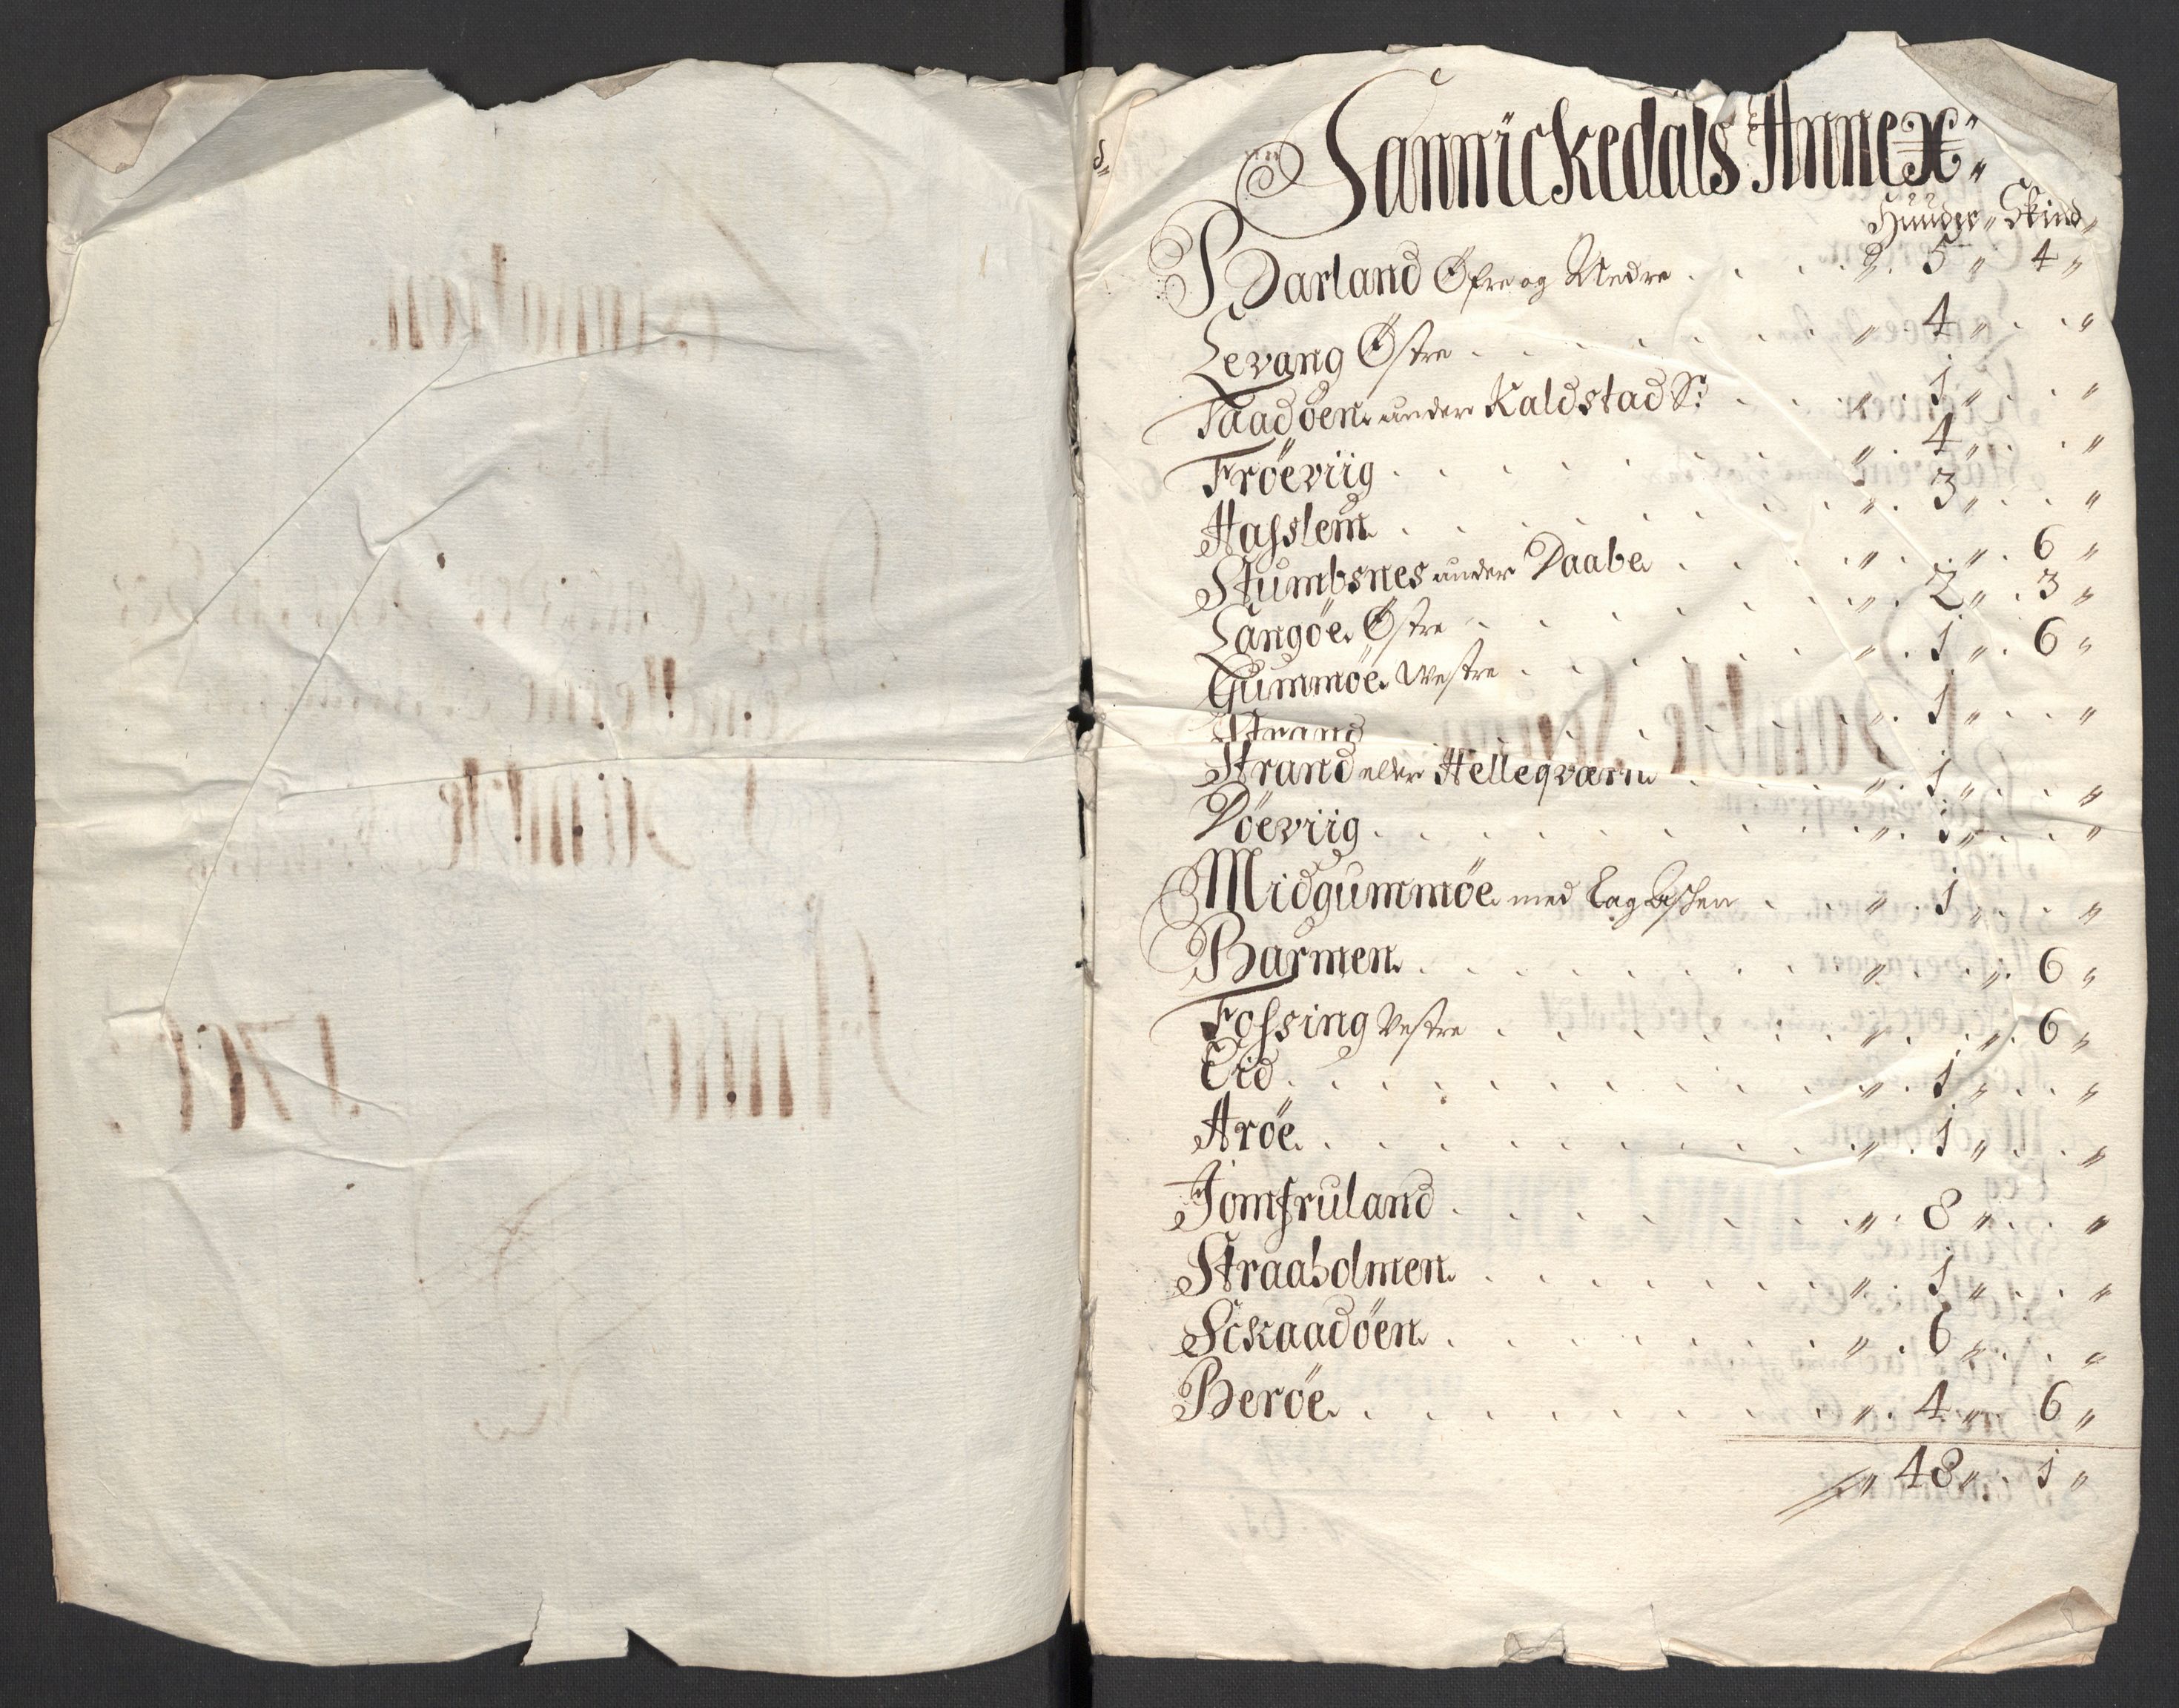 Sannickedals Annex
Huuder Skind
Barland Øfre og Nedre . . . 5 " 4 "
Levang Østre . . . 4 " . . "
Taadøen under Kaldstad S: . . . 1 " . . "
Frøeviig . . . 4 " . . "
Hasslem . . . 3 " . . "
Stumbsnes under Daabe . . . " . 6 "
Langøe Østre . . . 2 " . 3 "
Gummøe Westre . . . 1 " . 6 "
Strand . . . 1 " . . "
Strand eller Helleqværn . . . 1 " . . "
Døeviig . . . 1 " . . "
Midgummøe med . . . 1 " . . "
Barmen . . . " . 6 "
Fossing Vestre . . . " . 6 "
Eid . . . 1 " . . "
Arøe . . . 1 " . . "
Jomfruland . . . 8 " . . "
Straaholmen . . . 1 " . . "
Sckaadøen . . . 6 " . . "
Berøe . . . 4 " 6 "
" 48 " . 1 "